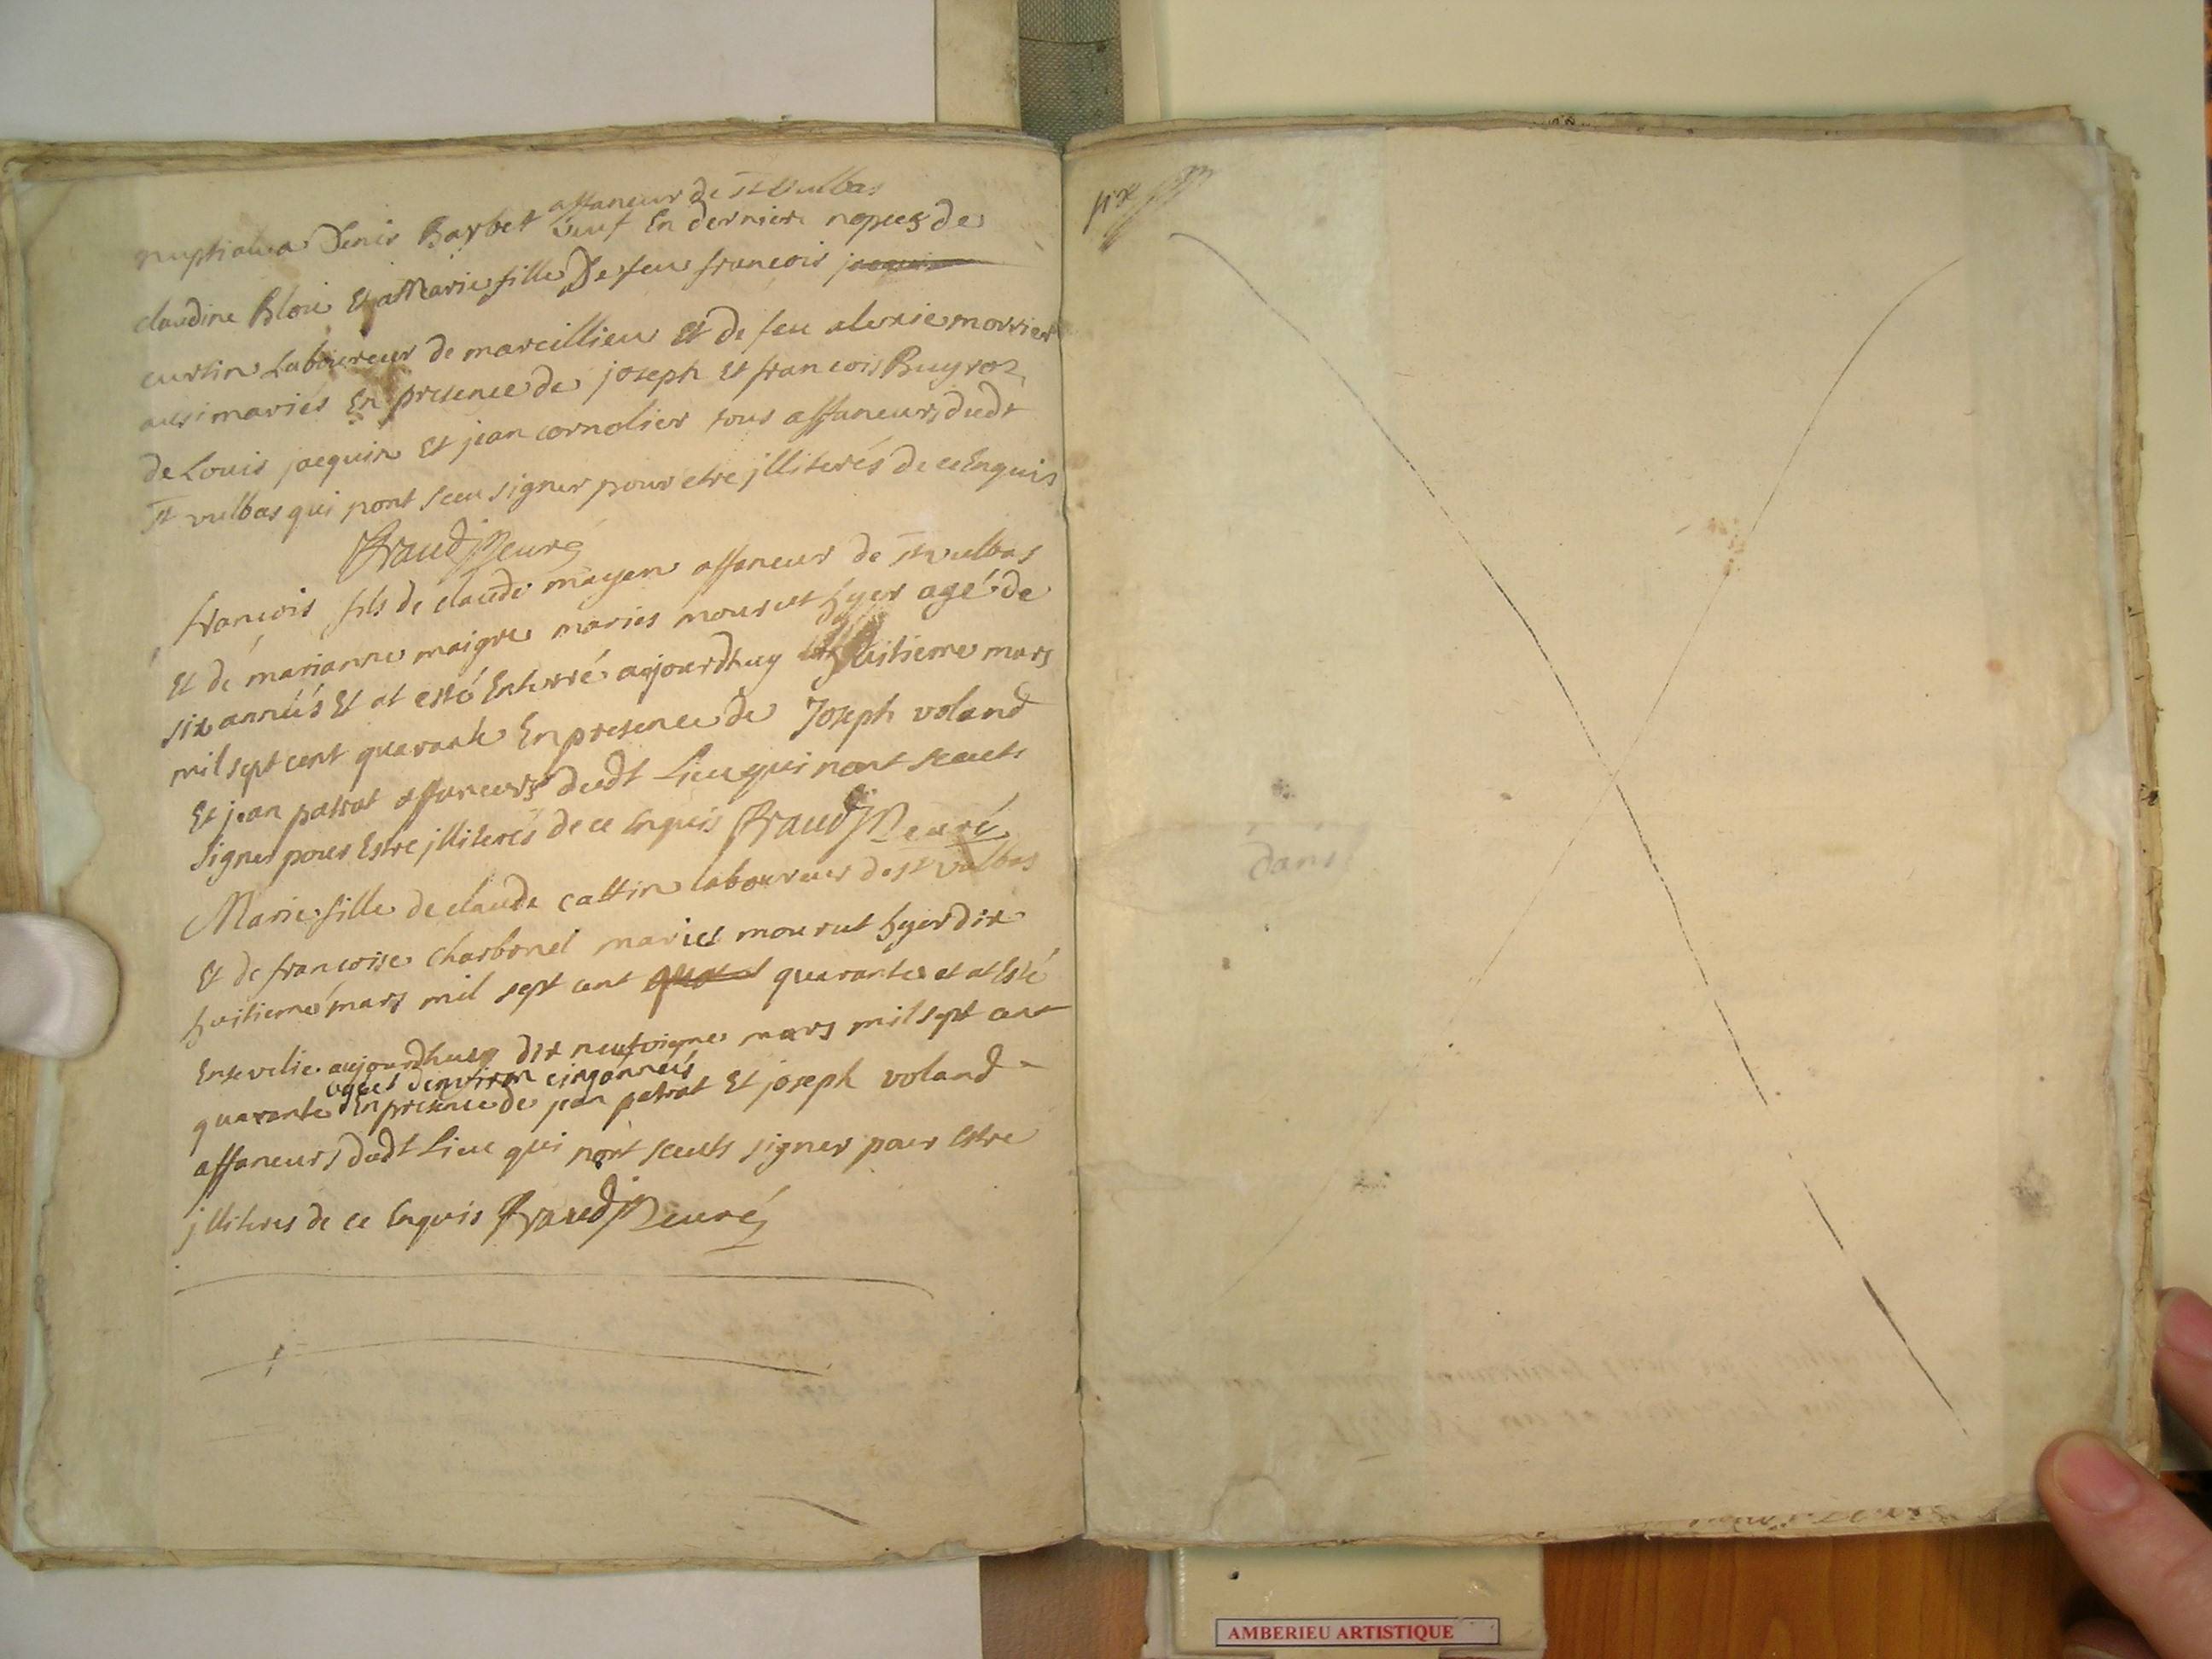 affaneur de st Vulbas
nuptialea Denis Barbet veuf En derniere nopces de
claudine Bloie Et a Marie fille De feu francois
curtin Laboureur de marcillieu Et de feu morrier
aussi mariés En presence de joseph Et francois Buyroz
de Louis jacquin Et jean cornolier tous affaneurs dudt
st vulbas qui nont sceu signer pour etre jlliterés de ce Enquis
Fraud Curé
francois fils de claude mayen affaneur de st vulbas
Et de marianne maigre mariés mourut hyer agé de
six années Et at esté Enterré aujourdhuy huitieme mars
mil sept cent quarante En presence de Joseph voland
Et jean patrat affaneurs dudt Lieu qui nont sceuts
signer pour Estre jlliterés de ce Enquis Fraud Curé
Marie fille de claude cattin laboureur de st vulbas
Et de francoise charbonel mariés mourut hyer dix
huitieme mars mil sept cent quarante et at Esté
Ensevelie aujourdhuy dix neufvieme mars mil sept cent
agée denviron cinq années
quarante En presence de jean patrat Et joseph voland
affaneurs dudt Lieu qui nont sceuts signer pour Estre
jlliteres de ce Enquis Fraud Curé
dans
AMBERIEU ARTISTIQUE